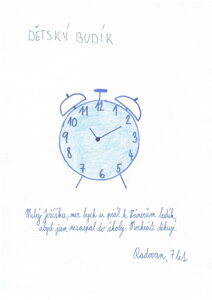 DĚTSKÝ BUDÍK
12
1
2
3
4
5
6
7
8
9
10
11
Milý Ježíšku, moc bych si přál k Vánocům budík,
abych jsem nezaspal do školy. Mockrát děkuji.
Radovan, 7 let